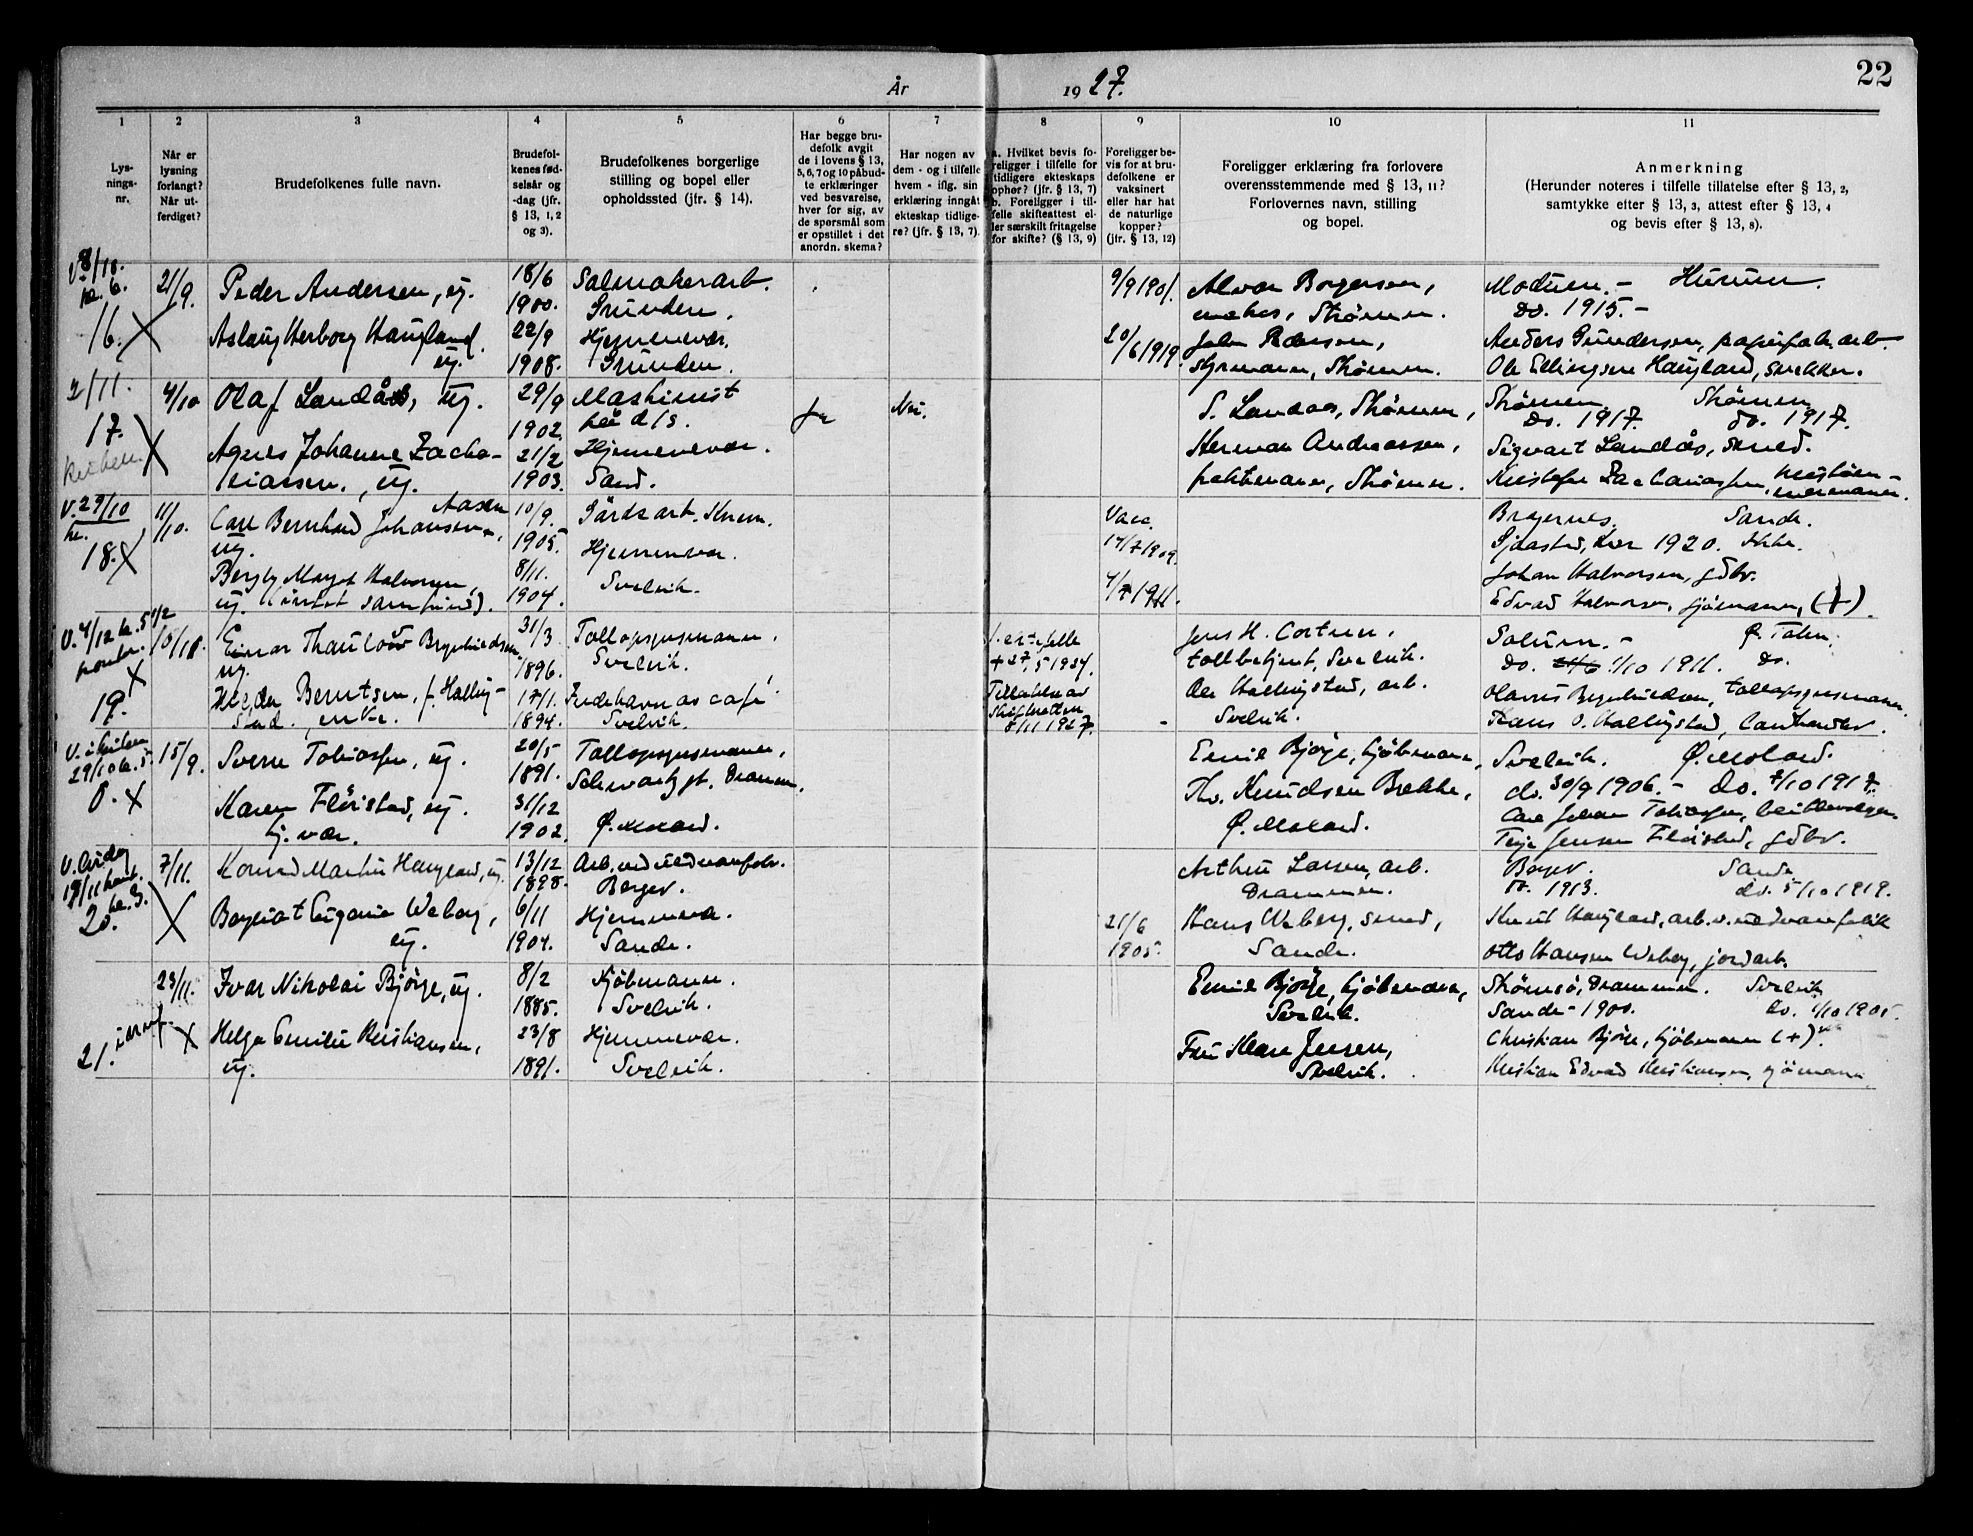 22
År 1927.
1 2 3 4 5 6 7 8 9 10 11
Lys-
nings-
nr.
Når er
lysning
forlangt?
Når ut-
ferdiget?
Brudefolkenes fulle navn.
Brudefol-
kenes fød-
selsår og
-dag (jfr.
§ 13, 1, 2
og 3).
Brudefolkenes borgerlige
stilling og bopel eller
opholdssted (jfr. § 14).
Har begge bru-
defolk avgit
de i lovens § 13,
5, 6, 7 og 10 påbud-
te erklæringer
ved besvarelse,
hver for sig, av
de spørsmål som
er opstillet i det
anordn. skema?
Har nogen av
dem - og i tilfelle
hvem - iflg. sin
erklæring inngåt
ekteskap tidlige-
re? (jfr. § 13, 7).
a. Hvilket bevis fo-
religger i tilfelle for
tidligere ekteskaps
ophør? (jfr. § 13, 7)
b. Foreligger i til-
felle skifteattest el-
ler særskilt fritagelse
for skifte? (§ 13, 9)
Foreligger be-
vis for at bru-
defolkene er
vaksinert
eller har hat
de naturlige
kopper?
(jfr. § 13, 12)
Foreligger erklæring fra forlovere
overensstemmende med § 13, 11?
Forlovernes navn, stilling
og bopel.
Anmerkning
(Herunder noteres i tilfelle tillatelse efter § 13, 2,
samtykke efter § 13, 3, attest efter § 13, 4
og bevis efter § 13, 8).
16. X
21/9.
Peder Andersen, ug.
Aslaug Herborg Haugland
ug.
18/6
1900.
22/9
1908.
Salmakerarb.
Grunden.
Hjemmevær.
Grunden.
9/9 1901.
20/6 1919.
Alvar Borgersen,
Strømm.
John Pedersen,
styrmann, Strømm.
Modum. - Hurum.
do. 1915. -
Anders Gundersen, papirfab. arb.
Ole Ellingsen Haugland, snekker.
2/11.
17. X
4/10
Olaf Landås, ug.
Agnes Johanne Zacha-
riassen, ug.
29/9
1902.
21/2
1903.
Maskinist
på d/s.
Hjemmevær.
Sand.
Ja
Nei.
S. Landaas, Strømm,
Herman Andreassen,
Strømm.
Strømm Strømm
do. 1917. do. 1917.
Sigvart Landås, smed.
Kristofer Zachariassen,
V. 29/10
18. X
11/10.
Aasen
Carl Bernhard Johansen,
ug.
Margot Halvorsen,
ug.
10/9.
1905.
8/11.
1904.
Gårdsarb.
Hjemmevær.
Svelvik.
Vacc.
14/7 1909.
4/7 1911.
Bragernes. Sande.
1920.
Johan Halvorsen, gdbr.
Edvard Halvorsen, sjømann, (+).
V. 4/12 kl. 5 1/2
X
19.
10/11.
Einar Thaulow Brynhildsen
ug.
Helga Berntsen, f. Halling-
stad, enke.
31/3
1896.
17/1.
1894.
Tollopsynsmann.
Svelvik.
Innehaver av café
Svelvik.
27/5 1924.
Tillatelse av
Skifteretten
8/11 1927.
Jens H. Cortsen,
tollbetjent, Svelvik.
Ole Hallingstad, arb.
Svelvik.
Solum. -
do. 1/10 1911. do.
Olavus Brynhildsen, tollopsynsmann.
Hans O. Hallingstad, landhandler.
29/10 kl. 5.
0. X
15/9.
Sverre Tobiassen, ug.
Karen Fløistad, ug.
hj. vær.
20/5
1891.
31/12
1902.
Tollopsynsmann,
Schwartzgt. Drammen.
Ø. Moland.
Emil Bjørge, kjøbmann,
Th. Knudsen Brekke,
Ø. Moland.
Svelvik. Ø. Moland.
do. 30/9 1906. - do. 7/10 1917.
Carl Johan Tobiassen,
Terje Jensen Fløistad, gdbr.
V. Lørdag
kl. 3.
20. X
7/11.
Konrad Martin Haugland, ug.
Eugenie Weberg,
ug.
13/12
1898.
6/11
1904.
Arb. ved uldvarefabr.
Berger.
Hjemmevær.
Sande.
21/6
1905.
Arthur Larsen, arb.
Drammen.
Hans Weberg, smed,
Sande.
Berger. Sande
do. 1913. do. 5/10 1919.
Knut Haugland, arb. v. uldvarefabrik
Otto Hansen Weberg, jordarb.
21. X
23/11.
Ivar Nikolai Bjørge, ug.
Helga Emilie Kristiansen,
ug.
8/2
1885.
23/8
1891.
Kjøbmann.
Svelvik.
Hjemmevær.
Svelvik.
Emil Bjørge, kjøbmann,
Svelvik.
Fru Jensen,
Svelvik.
Strømsø, Drammen. Svelvik
Sande - 1900. do. 1/10 1905.
Christian Bjørge, kjøbmann (+)
Kristian Edvard Kristiansen, sjømann